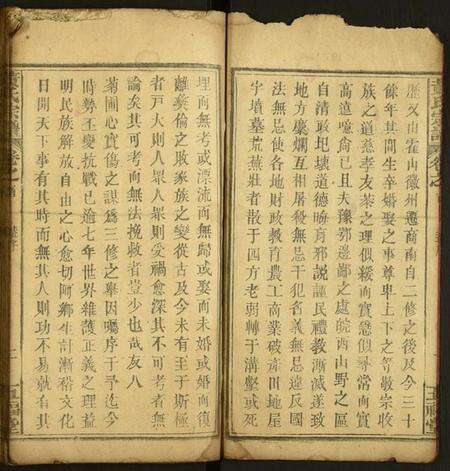 歷又山霍山徽州遷商南自二修之後及今三十
餘年其間生卒婚娶之事尊卑上下之等敬宗收
族之道慈孝友恭之理似緩而實急似尋常而實
高遠噫尚已且夫豫鄂邊鄙之處皖西山野之區
自清政圯壞道德晦盲邪說誣民禮教漸滅遂致
地方糜爛互相屠殺無忌干犯名義無忌違反國
法無忌使各地財政教育農工商業破產田地屋
宇墳墓荒蕪壯者散于四方老弱轉于溝壑或死
埋而無考或漂流而無歸或娶而未婚或婚而復
離彝倫之敗家族之變從古及今未有至于斯極
者戶大則人眾人眾則受禍愈深其不可考者無
論矣其可考而無法挽救者豈少也哉友八
菊圃心實傷之謀為三修之舉因囑序于予迄今
時勢丕變抗戰已逾七年世界雜誌正義之理益
明民族解放自由之心愈切阿鄉生計漸裕文化
日開天下事有其時而無其人則功不易就有其